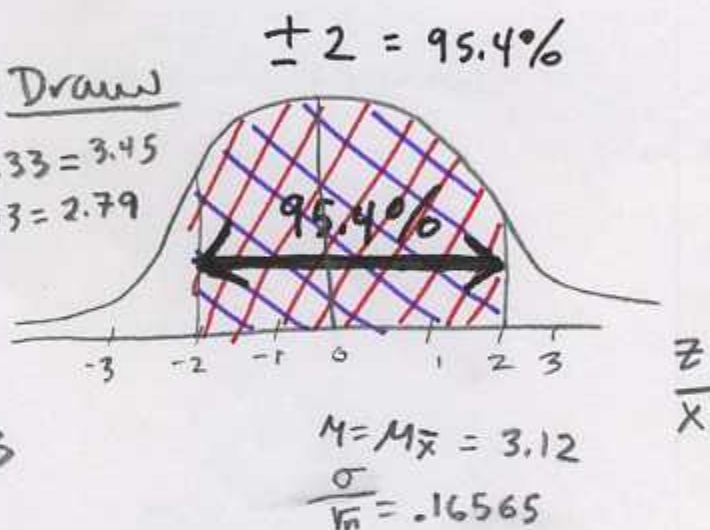 ± 2 = 95.4%
Draw
.33 = 3.45
3 = 2.79
95.4%
-3 -2 -1 0 1 2 3
z
x
M = Mx̄ = 3.12
σ/√n = .16565